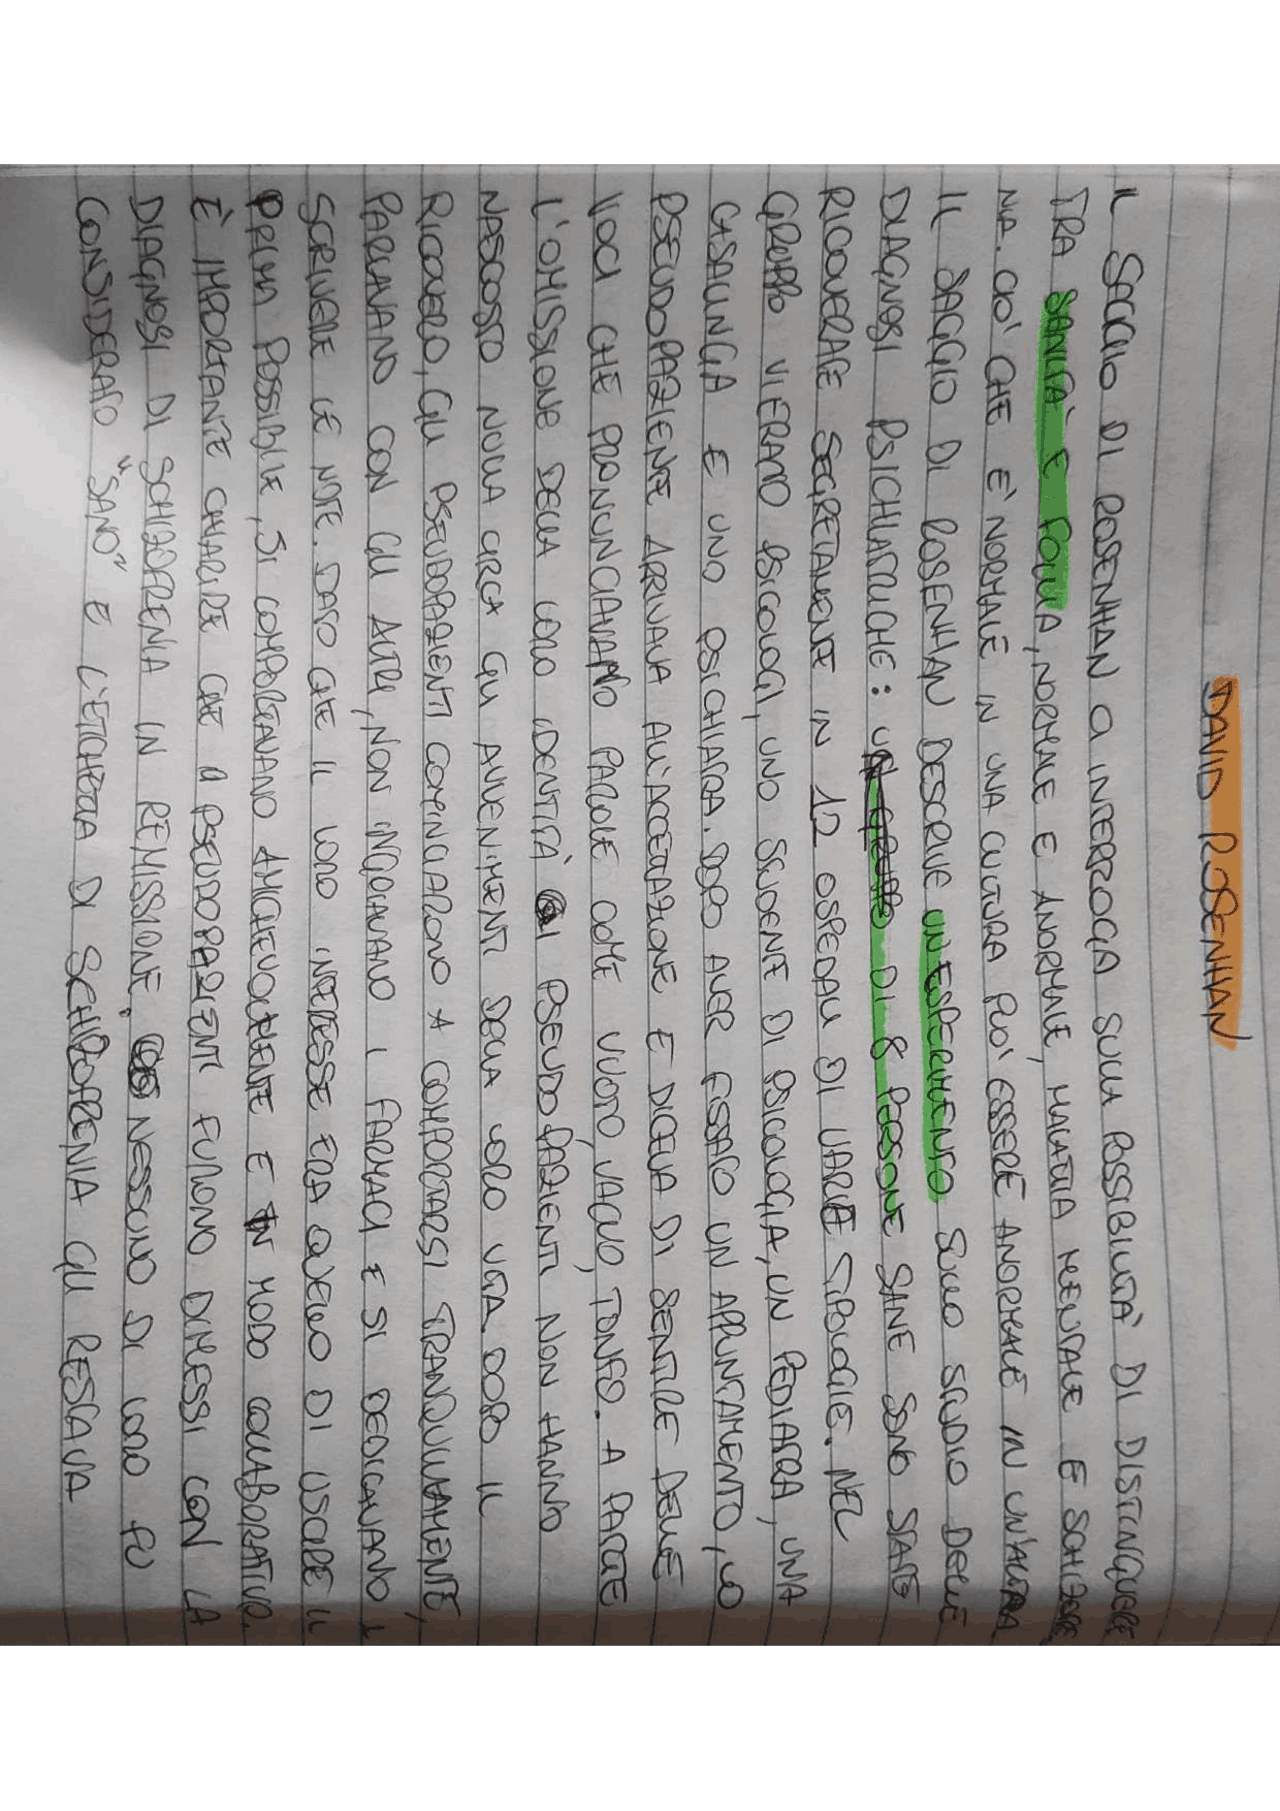 DAVID ROSENHAN
IL SAGGIO DI ROSENHAN CI INTERROGA SULLA POSSIBILITÀ DI DISTINGUERE
TRA SANITÀ E FOLLIA, NORMALE E ANORMALE, MALATTIA MENTALE E SCHIZOFRE
NIA. CIO' CHE E' NORMALE IN UNA CULTURA PUO' ESSERE ANORMALE IN UN'ALTRA
IL SAGGIO DI ROSENHAN DESCRIVE UN ESPERIMENTO SULLO STUDIO DELLE
DIAGNOSI PSICHIATRICHE: UN GRUPPO DI 8 PERSONE SANE SONO STATE
RICOVERATE SEGRETAMENTE IN 12 OSPEDALI DI VARIE TIPOLOGIE. NEL
GRUPPO VI ERANO PSICOLOGI, UNO STUDENTE DI PSICOLOGIA, UN PEDIATRA, UNA
CASALINGA E UNO PSICHIATRA. DOPO AVER FISSATO UN APPUNTAMENTO, LO
PSEUDOPAZIENTE ARRIVAVA ALL'ACCETTAZIONE E DICEVA DI SENTIRE DELLE
VOCI CHE PRONUNCIAVANO PAROLE COME VUOTO, VACUO, TONFO. A PARTE
L'OMISSIONE DELLA LORO IDENTITÀ GLI PSEUDOPAZIENTI NON HANNO
NASCOSTO NULLA CIRCA GLI AVVENIMENTI DELLA LORO VITA. DOPO IL
RICOVERO, GLI PSEUDOPAZIENTI COMINCIARONO A COMPORTARSI TRANQUILLAMENTE,
PARLAVANO CON GLI ALTRI, NON INGOIAVANO I FARMACI E SI DEDICAVANO A
SCRIVERE LE NOTE. DATO CHE IL LORO INTERESSE ERA QUELLO DI USCIRE IL
PRIMA POSSIBILE, SI COMPORTAVANO AMICHEVOLMENTE E IN MODO COLLABORATIVO.
È IMPORTANTE CHIARIRE CHE I PSEUDOPAZIENTI FURONO DIMESSI CON LA
DIAGNOSI DI SCHIZOFRENIA IN REMISSIONE. NESSUNO DI LORO FU
CONSIDERATO "SANO" E L'ETICHETTA DI SCHIZOFRENIA GLI RESTAVA